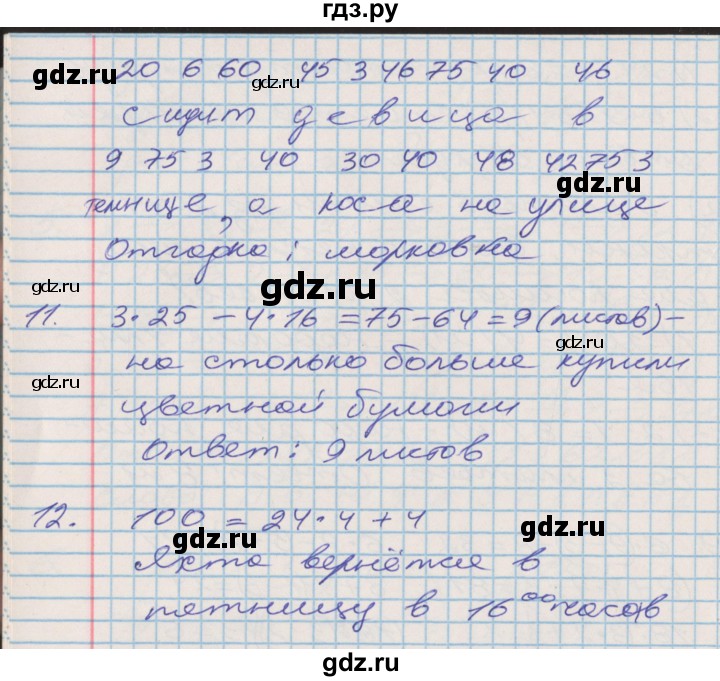 гдз.ру
20 6 60 45 3 46 75 40 46
gdz.ru gdz.ru gdz.ru
сидит девица в
9 75 3 40 30 40 48 42 75 3
gdz.ru
темнице, а коса на улице
Отгадка: морковка
gdz.ru gdz.ru
11. 3·25 - 4·16 = 75 - 64 = 9 (листов) -
gdz.ru
на столько больше купили
gdz.ru
цветной бумаги
Ответ: 9 листов
12. 100 = 24·4 + 4
gdz.ru gdz.ru
Яхта вернётся в
пятницу в 16⁰⁰ часов
gdz.ru
gdz.ru